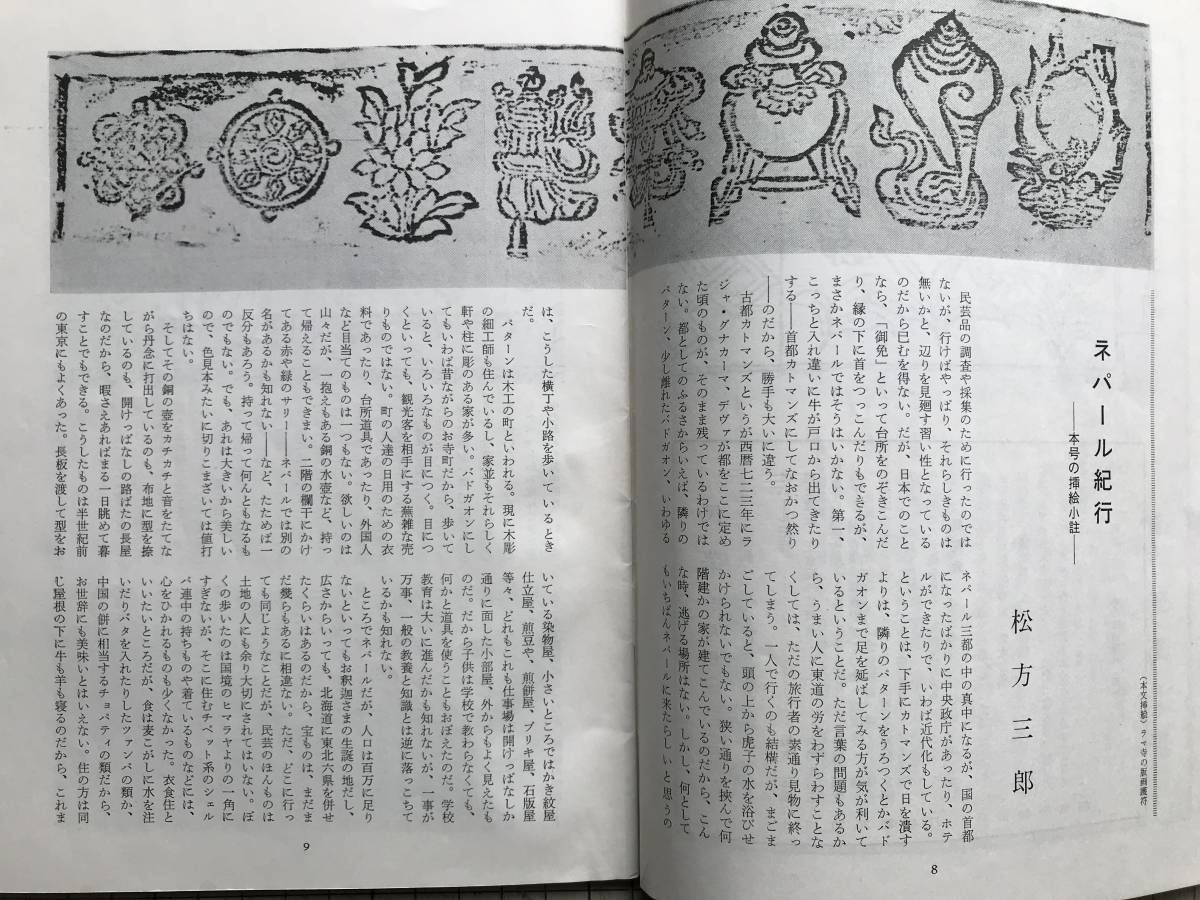 ネパール紀行
――本号の挿絵小註――
松方三郎
(本文挿絵)ラマ寺の版画護符
民芸品の調査や採集のために行ったのでは
ないが、行けばやっぱり、それらしきものは
無いかと、辺りを見廻す習い性となっている
のだから已むを得ない。だが、日本でのこと
なら、「御免」といって台所をのぞきこんだ
り、縁の下に首をつっこんだりもできるが、
まさかネパールではそうはいかない。第一、
こっちと入れ違いに牛が戸口から出てきたり
する――首都カトマンズにしてなおかつ然り
――のだから、勝手も大いに違う。
古都カトマンズというが西暦七二三年にラ
ジャ・グナカーマ、デヴァが都をここに定め
た頃のものが、そのまま残っているわけでは
ない。都としてのふるさからいえば、隣りの
パターン、少し離れたバドガオン、いわゆる
ネパール三都の中の真中になるが、国の首都
になったばかりに中央政庁があったり、ホテ
ルができたりで、いわば近代化もしている。
ということは、下手にカトマンズで日を潰す
よりは、隣りのパターンをうろつくとかバド
ガオンまで足を延ばしてみる方が気が利いて
いるということだ。ただ言葉の問題もあるか
ら、うまい人に東道の労をわずらわすことな
くしては、ただの旅行者の素通り見物に終っ
てしまう。一人で行くのも結構だが、まごま
ごしていると、頭の上から虎子の水を浴びせ
かけられないでもない。狭い通りを挟んで何
階建かの家が建てこんでいるのだから、こん
な時、逃げる場所はない。しかし、何として
もいちばんネパールに来たらしいと思うの
8
は、こうした横丁や小路を歩いているとき
だ。
パターンは木工の町といわれる。現に木彫
の細工師も住んでいるし、家並もそれらしく
軒や柱に彫のある家が多い。バドガオンにし
てもいわば昔ながらのお寺町だから、歩いて
いると、いろいろなものが目につく。目につ
くといっても、観光客を相手にする蕪雑な売
りものではない。町の人達の日用のための衣
料であったり、台所道具であったり、外国人
など目当てのものは一つもない。欲しいのは
山々だが、一抱えもある銅の水壺など、持っ
て帰えることもできまい。二階の欄干にかけ
てある赤や緑のサリー――ネパールでは別の
名があるかも知れない――など、たためば一
反分もあろう。持って帰って何んともなるも
のでもない。でも、あれは大きいから美しい
ので、色見本みたいに切りこまざいては値打
ちはない。
そしてその銅の壺をカチカチと音をたてな
がら丹念に打出しているのも、布地に型を捺
しているのも、開けっぱなしの路ばたの長屋
なのだから、暇さえあればまる一日眺めて暮
すことでもできる。こうしたものは半世紀前
の東京にもよくあった。長板を渡して型をお
いている染物屋、小さいところではかき紋屋
仕立屋、煎豆や、煎餅屋、ブリキ屋、石版屋
等々、どれもこれも仕事場は開けっぱなしか
通りに面した小部屋、外からもよく見えたも
のだ。だから子供は学校で教わらなくても、
何かと道具を使うこともおぼえたのだ。学校
教育は大いに進んだかも知れないが、一事が
万事、一般の教養と知識とは逆に落っこちて
いるかも知れない。
ところでネパールだが、人口は百万に足り
ないといってもお釈迦さまの生誕の地だし、
広さからいっても、北海道に東北六県を併せ
たくらいはあるのだから、宝ものは、まだま
だ幾らもあるに相違ない。ただ、どこに行っ
ても同じようなことだが、民芸のほんものは
土地の人にも余り大切にされてはいない。ぼ
くの歩いたのは国境のヒマラヤよりの一角に
すぎないが、そこに住むチベット系のシェル
パ連中の持ちものや着ているものなどには、
心をひかれるものも少くなかった。衣食住と
いいたいところだが、食は麦こがしに水を注
いだりバタを入れたりしたツァンバの類か、
中国の餅に相当するチョパティの類だから、
お世辞にも美味いとはいえない。住の方は同
じ屋根の下に牛も羊も寝るのだから、これま
9